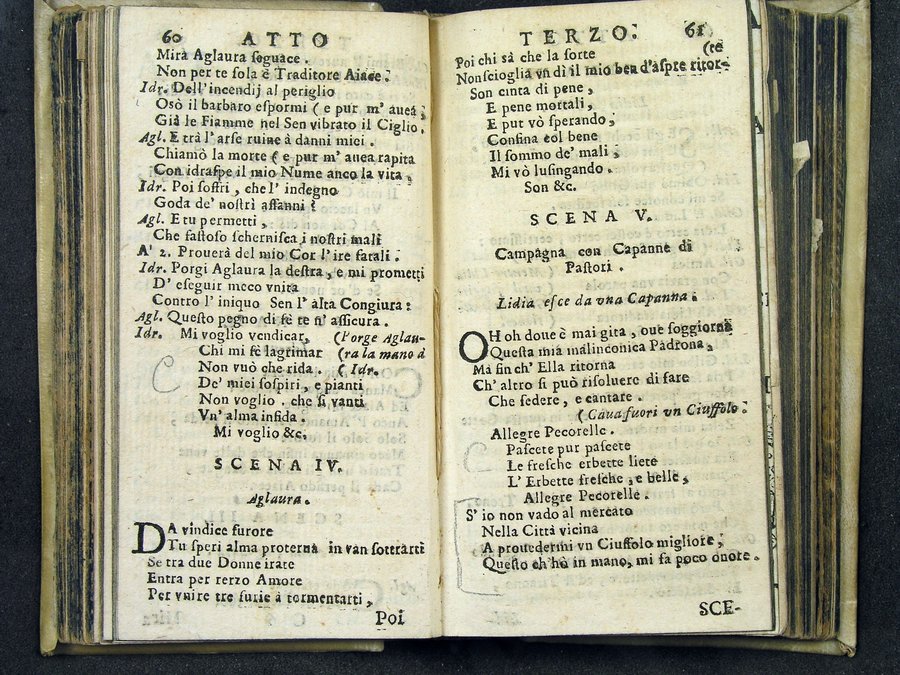 60 ATTO
Mira Aglaura seguace.
Non per te sola è Traditore Aiace.
Idr. Dell'incendij al periglio
Osò il barbaro espormi (e pur m' aueá;
Già le Fiamme nel Sen vibrato il Ciglio.
Agl. E trà l' arse ruine à danni miei.
Chiamò la morte (e pur m' auea rapita
Con idraspe il mio Nume anco la vita,
Idr. Poi soffri, che l' indegno
Goda de' nostri affanni?
Agl. E tu permetti,
Che fastoso schernisca i nostri mali
A' 2. Prouerà del mio Cor l' ire fatali.
Idr. Porgi Aglaura la destra, e mi prometti
D' eseguir meco vnita
Contro l' iniquo Sen l' alta Congiura:
Agl. Questo pegno di fè te n' assicura.
Idr. Mi voglio vendicar, (Porge Aglau-
Chi mi fè lagrimar (ra la mano à
Non vuò che rida. (Idr.
De' miei sospiri, e pianti
Non voglio, che si vanti
Vn' alma infida.
Mi voglio &c.
SCENA IV.
Aglaura.
DA vindice furore
Tu speri alma proterua in van sottrarti
Se tra due Donne irate
Entra per terzo Amore
Per vnire tre furie à tormentarti,
Poi
TERZO. 61
Poi chi sà che la sorte (te
Non scioglia vn dì il mio ben d'aspre ritor-
Son cinta di pene,
E pene mortali,
E put vò sperando,
Confina col bene
Il sommo de' mali;
Mi vò lusingando.
Son &c.
SCENA V.
Campagna con Capanne di
Pastori.
Lidia esce da vna Capanna.
OH oh doue è mai gita, oue soggiorna
Questa mia malinconica Padrona,
Ma fin ch' Ella ritorna
Ch' altro si può risoluere di fare
Che sedere, e cantare.
(Caua fuori vn Ciuffolo.
Allegre Pecorelle.
Pascete pur pascete
Le fresche erbette liete
L' Erbette fresche, e belle,
Allegre Pecorelle.
S' io non vado al mercato
Nella Città vicina
A prouedermi vn Ciuffolo migliore,
Questo ch' hò in mano, mi fa poco onore.
SCE-